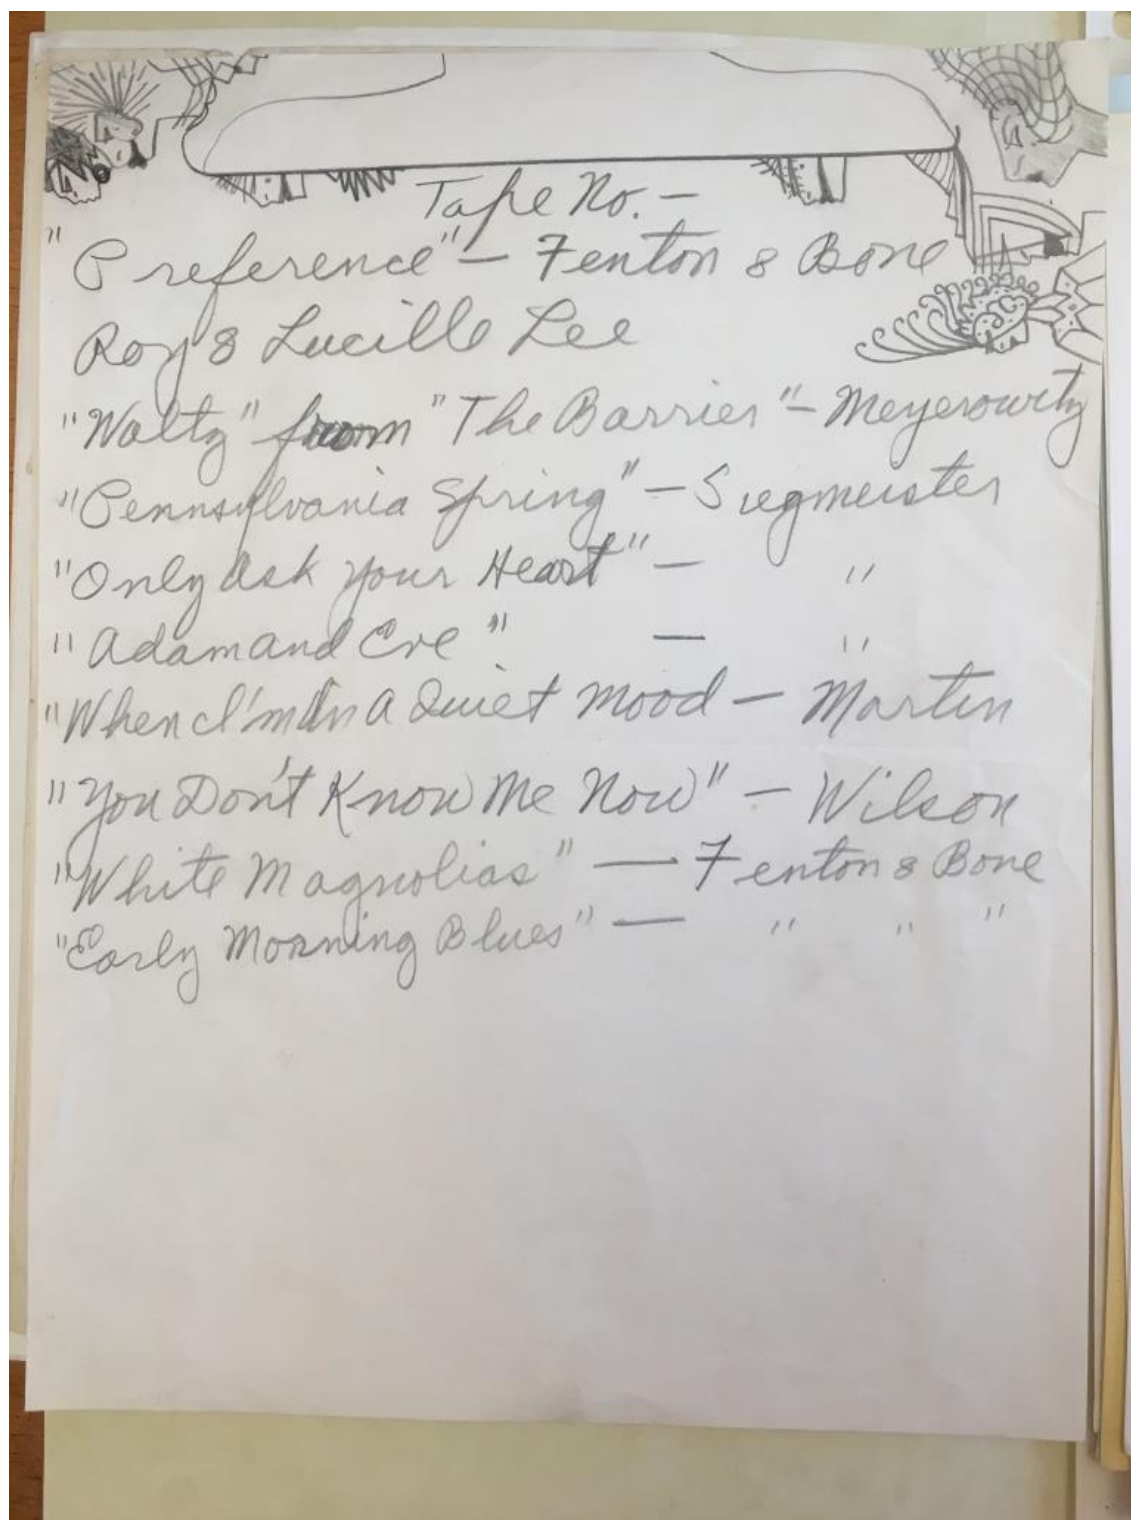 Tape No. —
"Preference" — Fenton & Bone
Roy & Lucille Lee
"Waltz" from "The Barrier" — Meyerowitz
"Pennsylvania Spring" — Siegmeister
"Only Ask Your Heart" — "
"Adam and Eve" — "
"When I'm In A Quiet Mood — Martin
"You Don't Know Me Now" — Wilson
"White Magnolias" — Fenton & Bone
"Early Morning Blues" — " " "